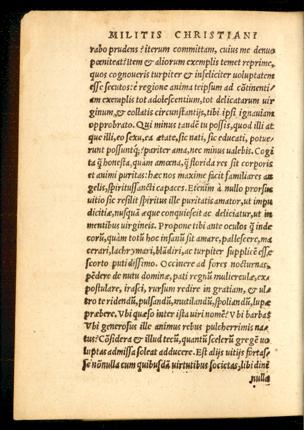 MILITIS CHRISTIANI
rabo prudens? iterum committam, cuius me denuo
pœniteat? item & aliorum exemplis temet reprime,
quos cognoueris turpiter & infeliciter uoluptatem
esse secutos: è regione anima teipsum ad cõtinenti
am exemplis tot adolescentium, tot delicatarum uir
ginum, & collatis circunstantijs, tibi ipsi ignauiam
opprobrato. Qui minus tandẽ tu possis, quod illi at
que illi, eo sexu, ea ætate, sic nati, sic educati, potue-
runt possuntq́; pariter ama, nec minus ualebis. Cogi
ta q̃ honesta, quàm amœna, q̃ florida res sit corporis
et animi puritas: hæc nos maxime facit familiares an
gelis, spiritussancti capaces. Etenim à nullo prorsus
uitio sic resilit spiritus ille puritatis amator, ut impu
dicitia, nusquã æque conquiescit ac deliciatur, ut in
mentibus uirgineis. Propone tibi ante oculos q̃ inde
corũ, quàm totũ hoc insanũ sit amare, pallescere, ma
cerari, lachrymari, blãdiri, ac turpiter supplicẽ esse
scorto putidissimo. Occinere ad fores nocturnas,
pẽdere de nutu dominæ, pati regnũ mulierculæ, ex-
postulare, irasci, rursum redire in gratiam, & ul
tro te ridendũ, pulsandũ, mutilandũ, spoliandũ, lupæ
præbere. Vbi quæso inter ista uiri nomẽ? Vbi barba?
Vbi generosus ille animus rebus pulcherrimis na-
tus? Cõsidera & illud tecũ, quantũ scelerũ gregẽ uo
luptas admissa soleat adducere. Est alijs uitijs fortas-
se nõnulla cum quibusdã uirtutibus societas, libidini
nulla